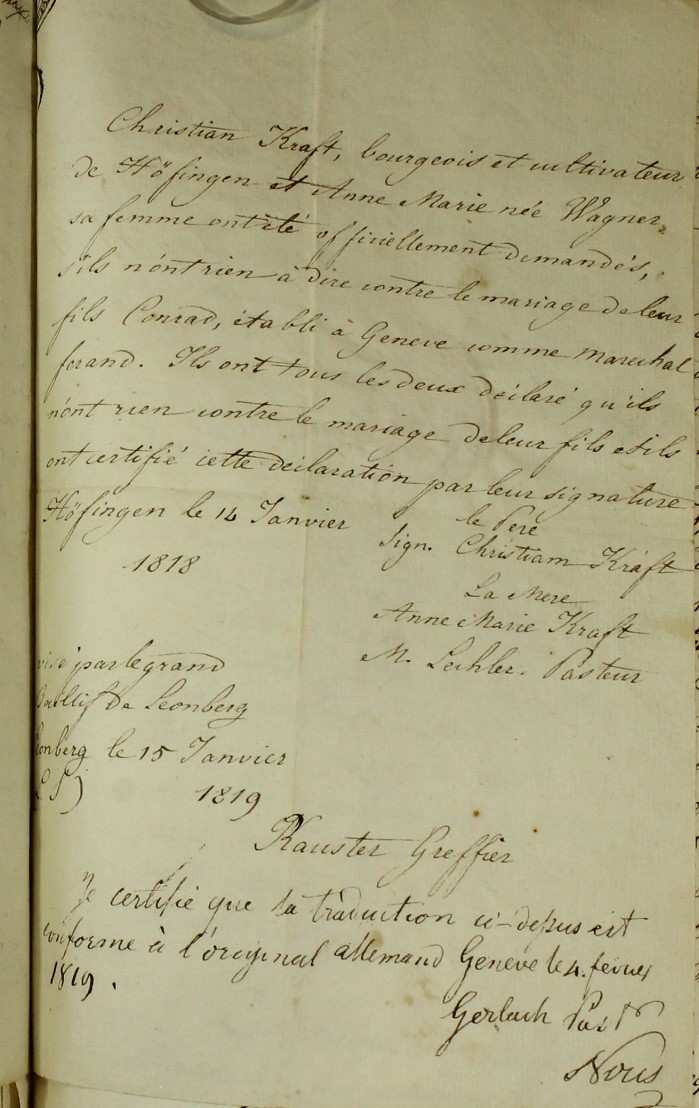 Christian Kraft, bourgeois et cultivateur
de Höfingen et Anne Marie née Wagner
sa femme ont été officiellement demandés,
s'ils n'ont rien à dire contre le mariage de leur
fils Conrad, établi à Geneve comme marechal
ferand. Ils ont tous les deux déclaré qu'ils
n'ont rien contre le mariage de leur fils et ils
ont certifié cette déclaration par leur signature
Höfingen le 14 Janvier
1818
le Pere
sign. Christiam Kraft
La Mere
Anne Marie Kraft
M. Lechler. Pasteur
visé par le grand
Baillif de Leonberg
Leonberg le 15 Janvier
(L S)
1819
Greffier
Je certifie que la traduction ci-dessus est
conforme à l'original allemand Genève le 4. fevrier
1819.
Gerlach Past
Nous